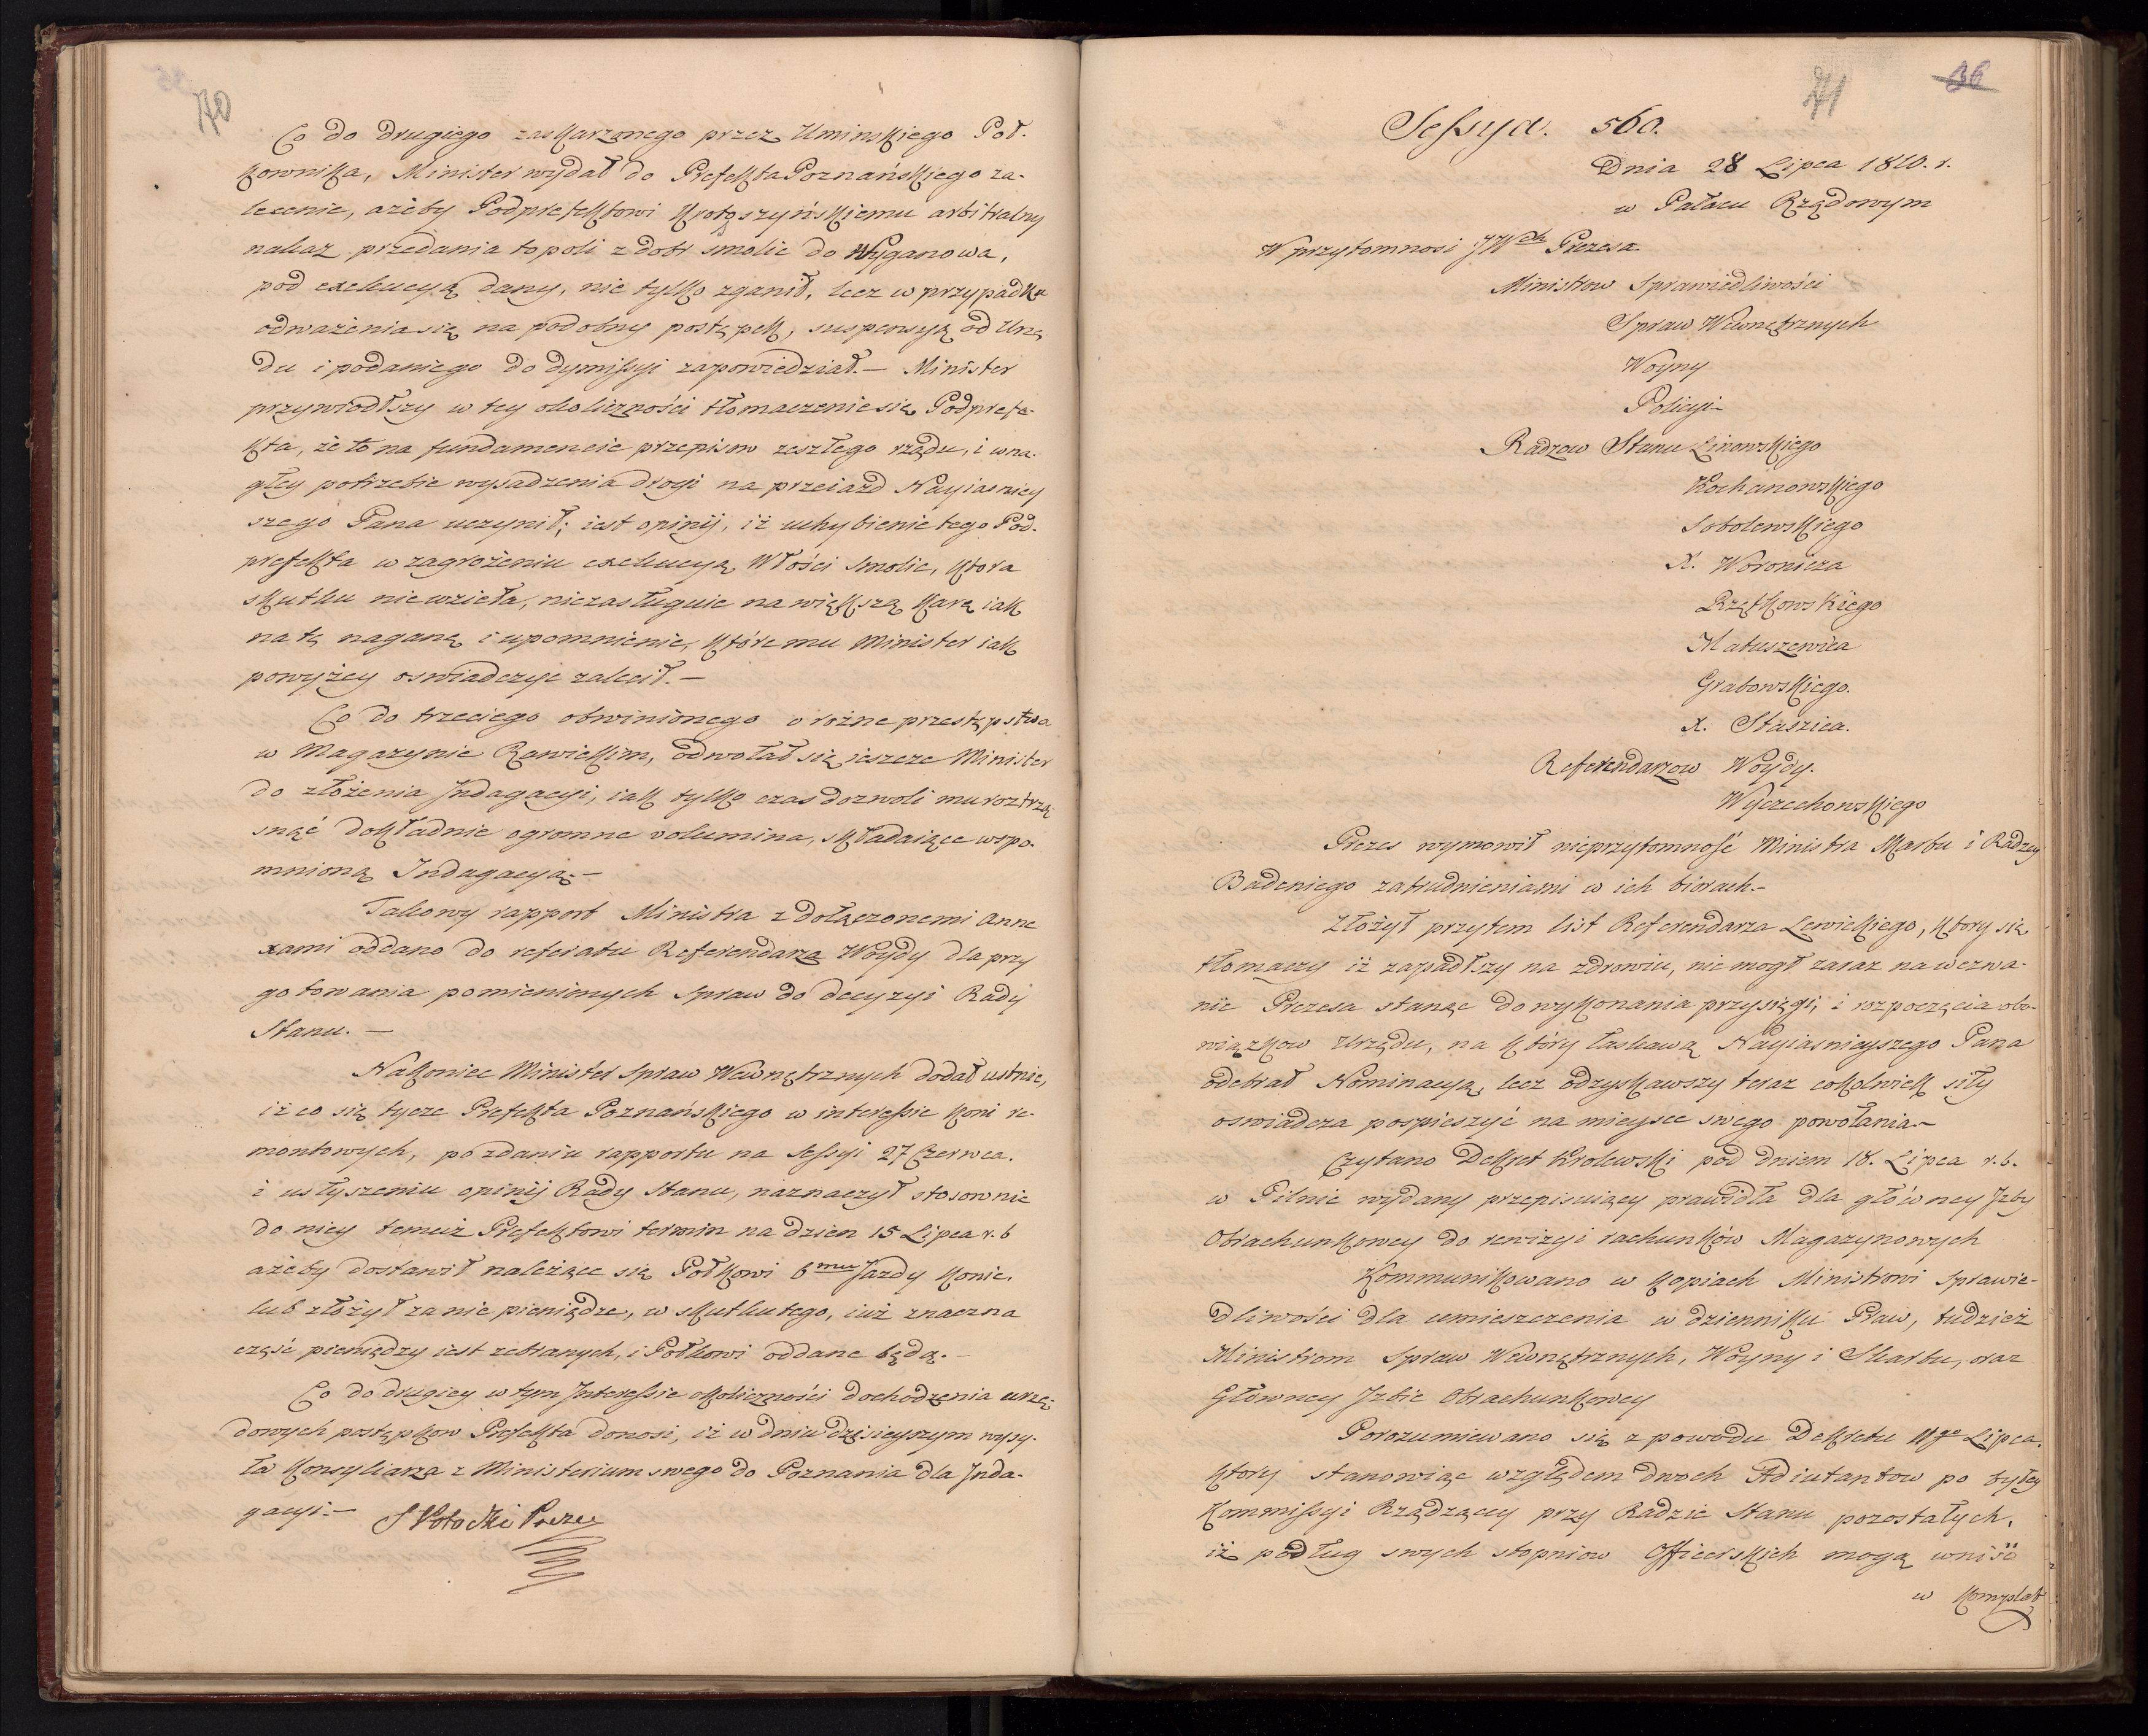 70
Co do drugiego zaskarzonego przez Uminskiego Poł-
kownika, Minister wydał do Prefekta Poznańskiego za-
lecenie, ażeby Podprefektowi Krotoszyńskiemu arbitralny
nakaz przedania topoli z dobr Smolic do Wyganowa,
pod exekucyą dany, nie tylko zganił, lecz w przypadku
odważenia się na podobny postępek, suspensyą od Urzę
du i podaniego do dymissyi zapowiedział. — Minister
przywiodłszy w tey okoliczności tłomaczenie się Podprefe-
kta, że to na fundamencie przepisow zeszłego rządu, i w na-
głey potrzebie wysadzenia drogi na przeiazd Nayiasniey
szego Pana uczynił; iest opinij, iż uchybienie tego Pod-
prefekta w zagrożeniu exekucyą Włości Smolic, ktora
skutku nie wzieła, niezasługuie na większą karę iak
na tę naganę i upomnienie, które mu Minister iak
powyżey oswiadczyc zalecił. —
Co do trzeciego obwinionego o rożne przestępstwa
w Magazynie Rawickim, odwołał się ieszcze Minister
do złożenia Indagacyi, iak tylko czas dozwoli mu roztrzą
snąć dokładnie ogromne volumina, składaiące wspo-
mnioną Indagacyą. —
Takowy rapport Ministra z dołączonemi Anne
xami oddano do referatu Referendarza Woydy dla przy
gotowania pomienionych spraw do decyzyi Rady
Stanu. —
Nakoniec Minister Spraw Wewnętrznych dodał ustnie,
iż co się tycze Prefekta Poznańskiego w interessie koni re-
montowych, po zdaniu rapportu na Sessyi 27 Czerwca.
i usłyszeniu opinij Rady Stanu, naznaczył stosownie
do niey temuż Prefektowi termin na dzien 15 Lipca r. b
ażeby dostawił należące się Półkowi 6mu Jazdy konie,
lub złożył za nie pieniądze, w skutku tego, iuż znaczna
część pieniędzy iest zebranych, i Półkowi oddane będą. —
Co do drugiey w tym Interessie okoliczności dochodzenia urzę-
dowych postępkow Prefekta donosi, iż w dniu dzisieyszym wysy-
ła Konsyliarza z Ministerium swego do Poznania dla Inda-
gacyi. — S Potocki Prezes
71
36
Sessya. 560.
Dnia 28 Lipca 1810. r.
w Pałacu Rządowym
W przytomnosi JWch Prezesa
Ministrow Sprawiedliwości
Spraw Wewnętrznych
Woyny
Policyi —
Radzcow Stanu Linowskiego
Kochanowskiego
Sobolewskiego
X. Woronicza
Rzętkowskiego
Matuszewica
Grabowskiego.
X. Staszica.
Referendarzow Woydy.
Wyczechowskiego
Prezes wymowił nieprzytomność Ministra Skarbu i Radzcy
Badeniego zatrudnieniami w ich biorach. —
Złożył przytem list Referendarza Lewickiego, ktory się
tłomaczy iż zapadłszy na zdrowiu, nie mogł zaraz na wezwa-
nie Prezesa stanąc do wykonania przysięgi, i rozpoczęcia obo-
wiązkow Urzędu, na który łaskawą Nayiasnieyszego Pana
odebrał Nominacyą, lecz odzyskawszy teraz cokolwiek siły
oswiadcza pospieszyć na mieysce swego powołania. —
Czytano Dekret Krolewski pod dniem 18. Lipca r. b.
w Pilnic wydany przepisuiący prawidła dla głównéy Izby
Obrachunkowey do rewizyi rachunków Magazynowych
Kommunikowano w kopiach Ministrowi Sprawie-
dliwości dla umieszczenia w dzienniku Praw, tudzież
Ministrom Spraw Wewnętrznych, Woyny i Skarbu, oraz
Główney Izbie Obrachunkowey
Porozumiewano się z powodu Dekretu 11go Lipca,
ktory stanowiąc względem dwoch Adiutantow po byłey
Kommissyi Rządzącey przy Radzie Stanu pozostałych,
iż podług swych stopniow Officerskich mogą wniść
w komplet